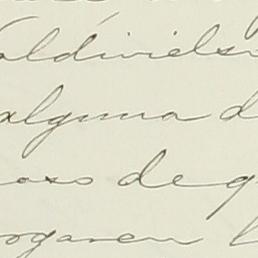 Valdivielso
alguna d
oso de q
rogaren l